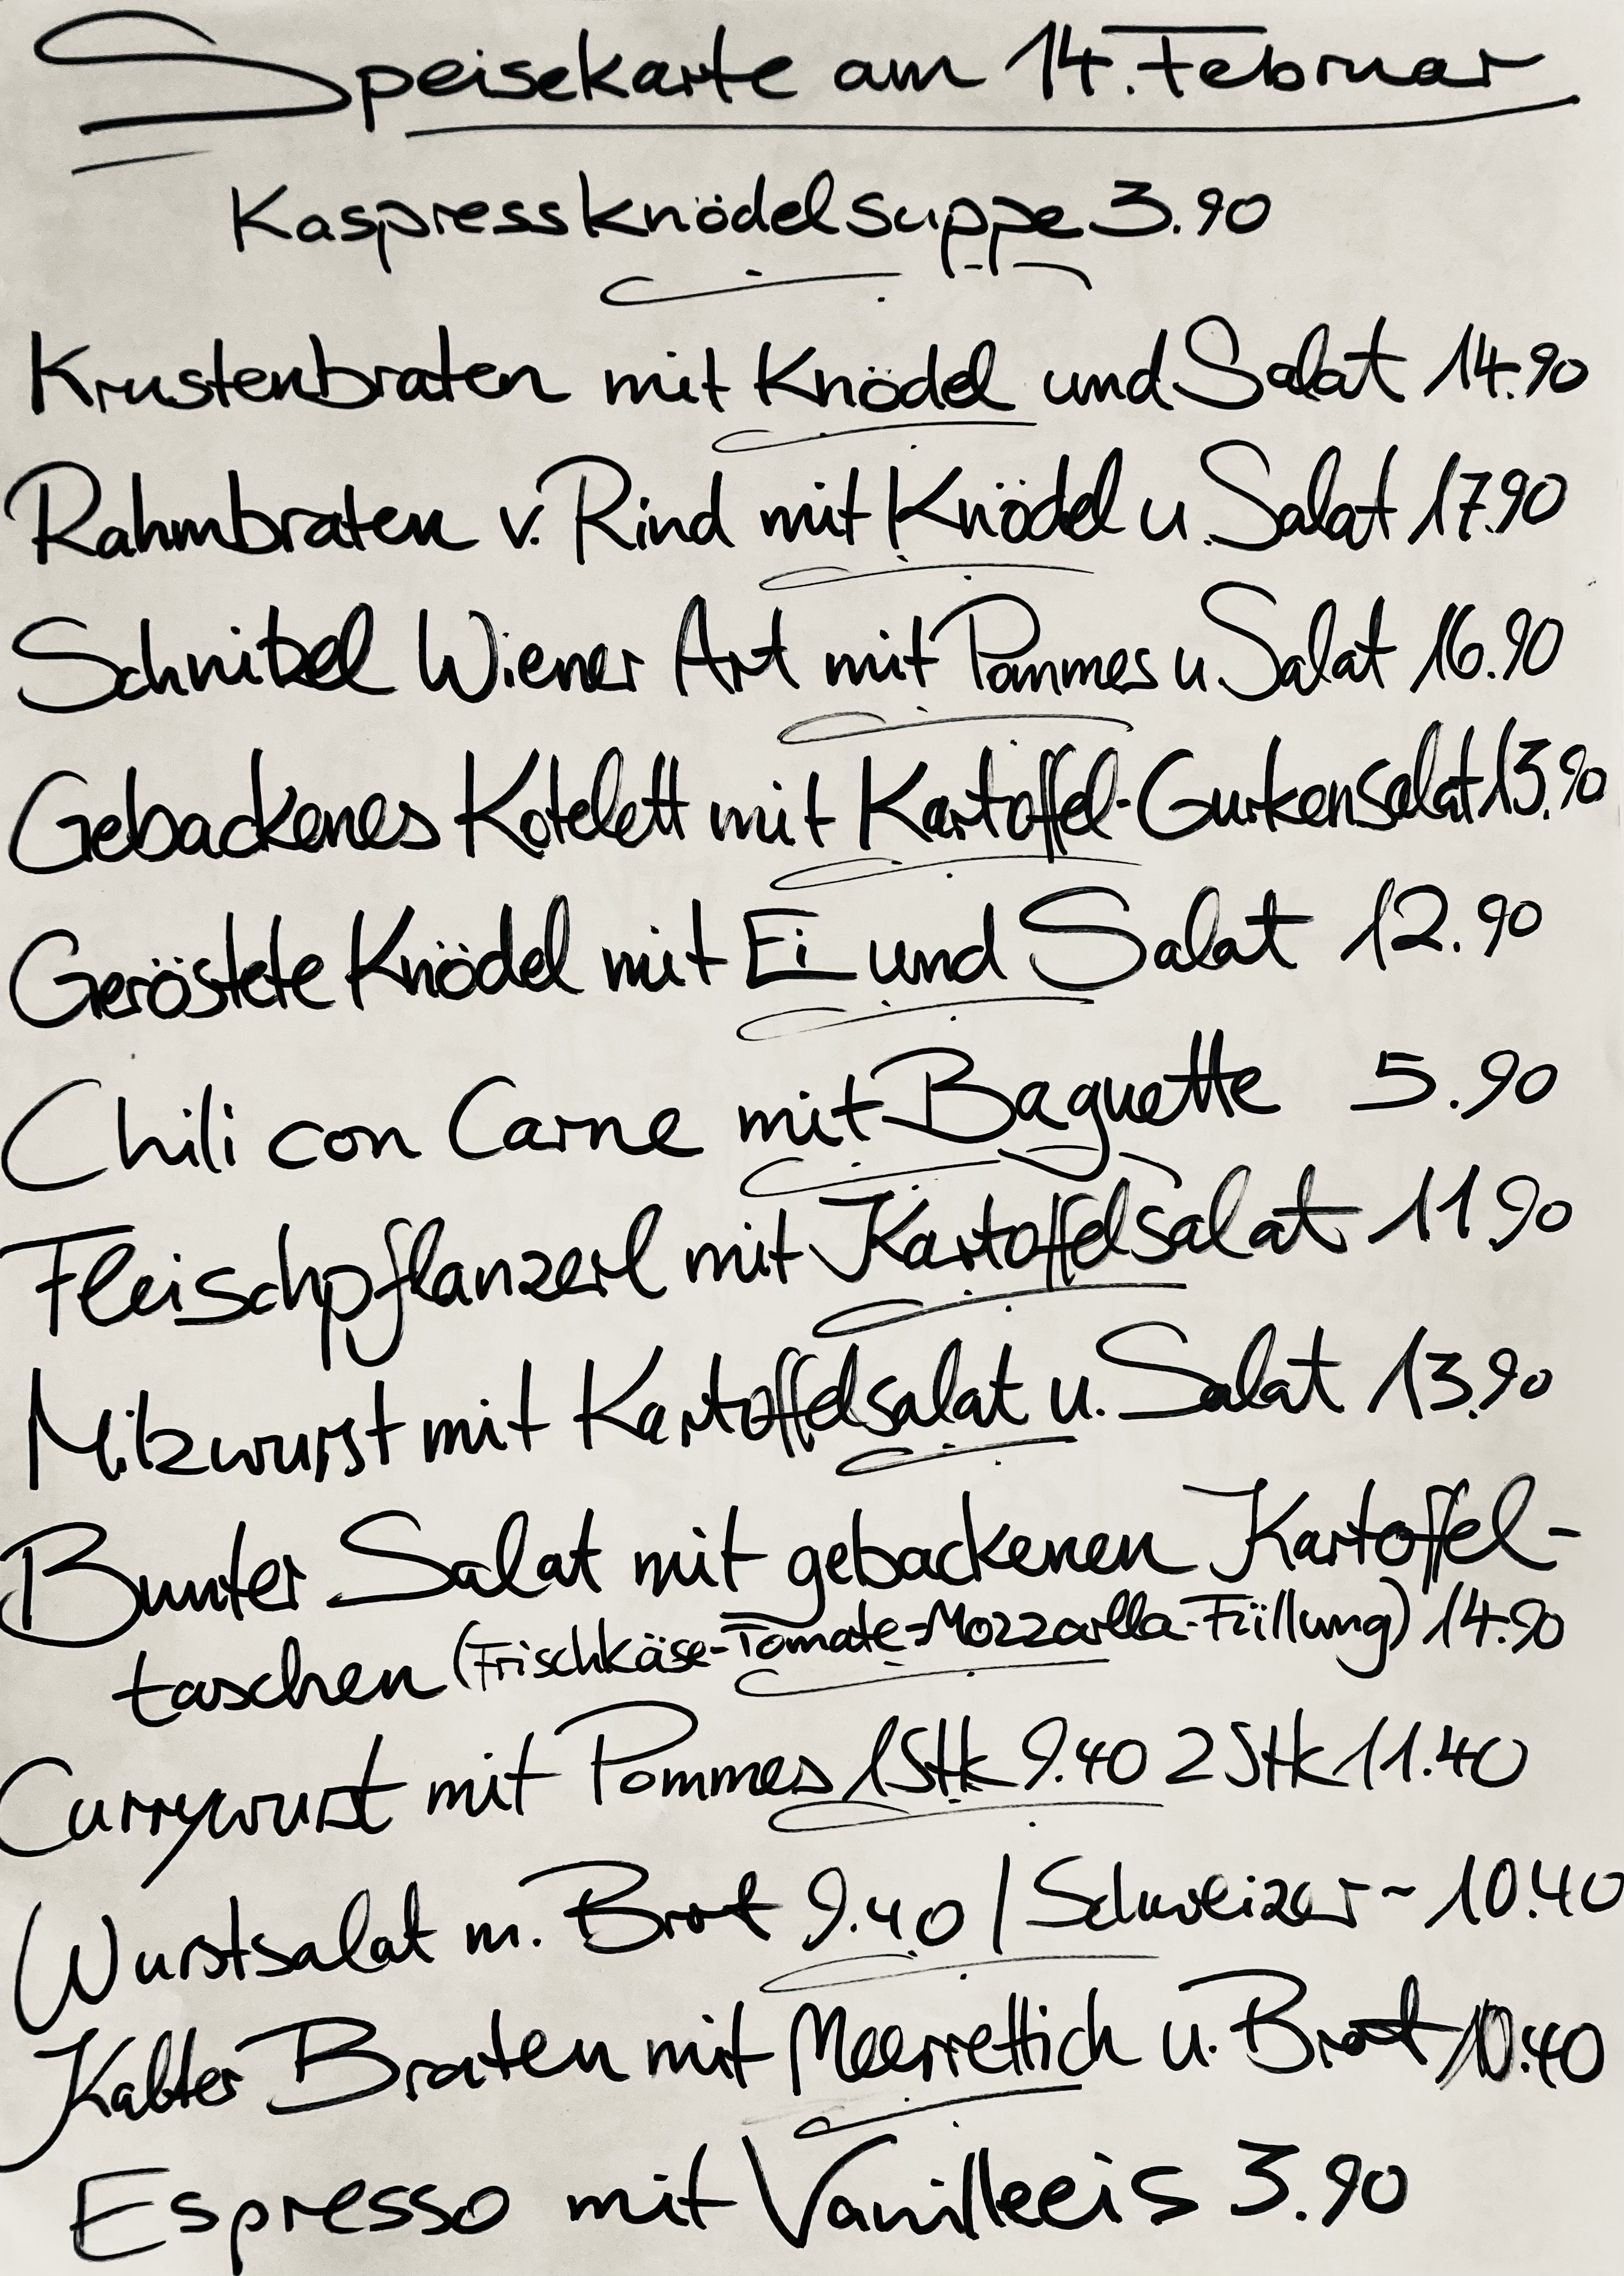 Speisekarte am 14. Februar
Kaspressknödelsuppe 3.90
Krustenbraten mit Knödel und Salat 14.90
Rahmbraten v. Rind mit Knödel u. Salat 17.90
Schnitzel Wiener Art mit Pommes u. Salat 16.90
Gebackenes Kotelett mit Kartoffel-Gurkensalat 13.90
Geröstete Knödel mit Ei und Salat 12.90
Chili con Carne mit Baguette 5.90
Fleischpflanzerl mit Kartoffelsalat 11.90
Milzwurst mit Kartoffelsalat u. Salat 13.90
Bunter Salat mit gebackenen Kartoffel-
taschen (Frischkäse-Tomate-Mozzarella-Füllung) 14.90
Currywurst mit Pommes 1Stk 9.40 2Stk 11.40
Wurstsalat m. Brot 9.40 / Schweizer ~ 10.40
Kalter Braten mit Meerrettich u. Brot 10.40
Espresso mit Vanilleeis 3.90